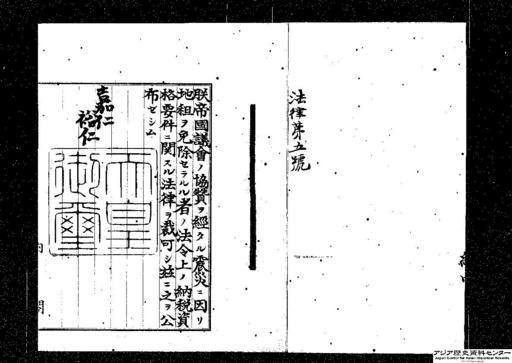 法律第五號
朕帝國議會ノ協贊ヲ經タル震災ニ因リ
地租ヲ免除セラルル者ノ法令上ノ納税資
格要件ニ關スル法律ヲ裁可シ茲ニ之ヲ公
布セシム
嘉仁
裕仁
天皇
御璽
内閣
アジア歴史資料センター
Japan Center for Asian Historical Records